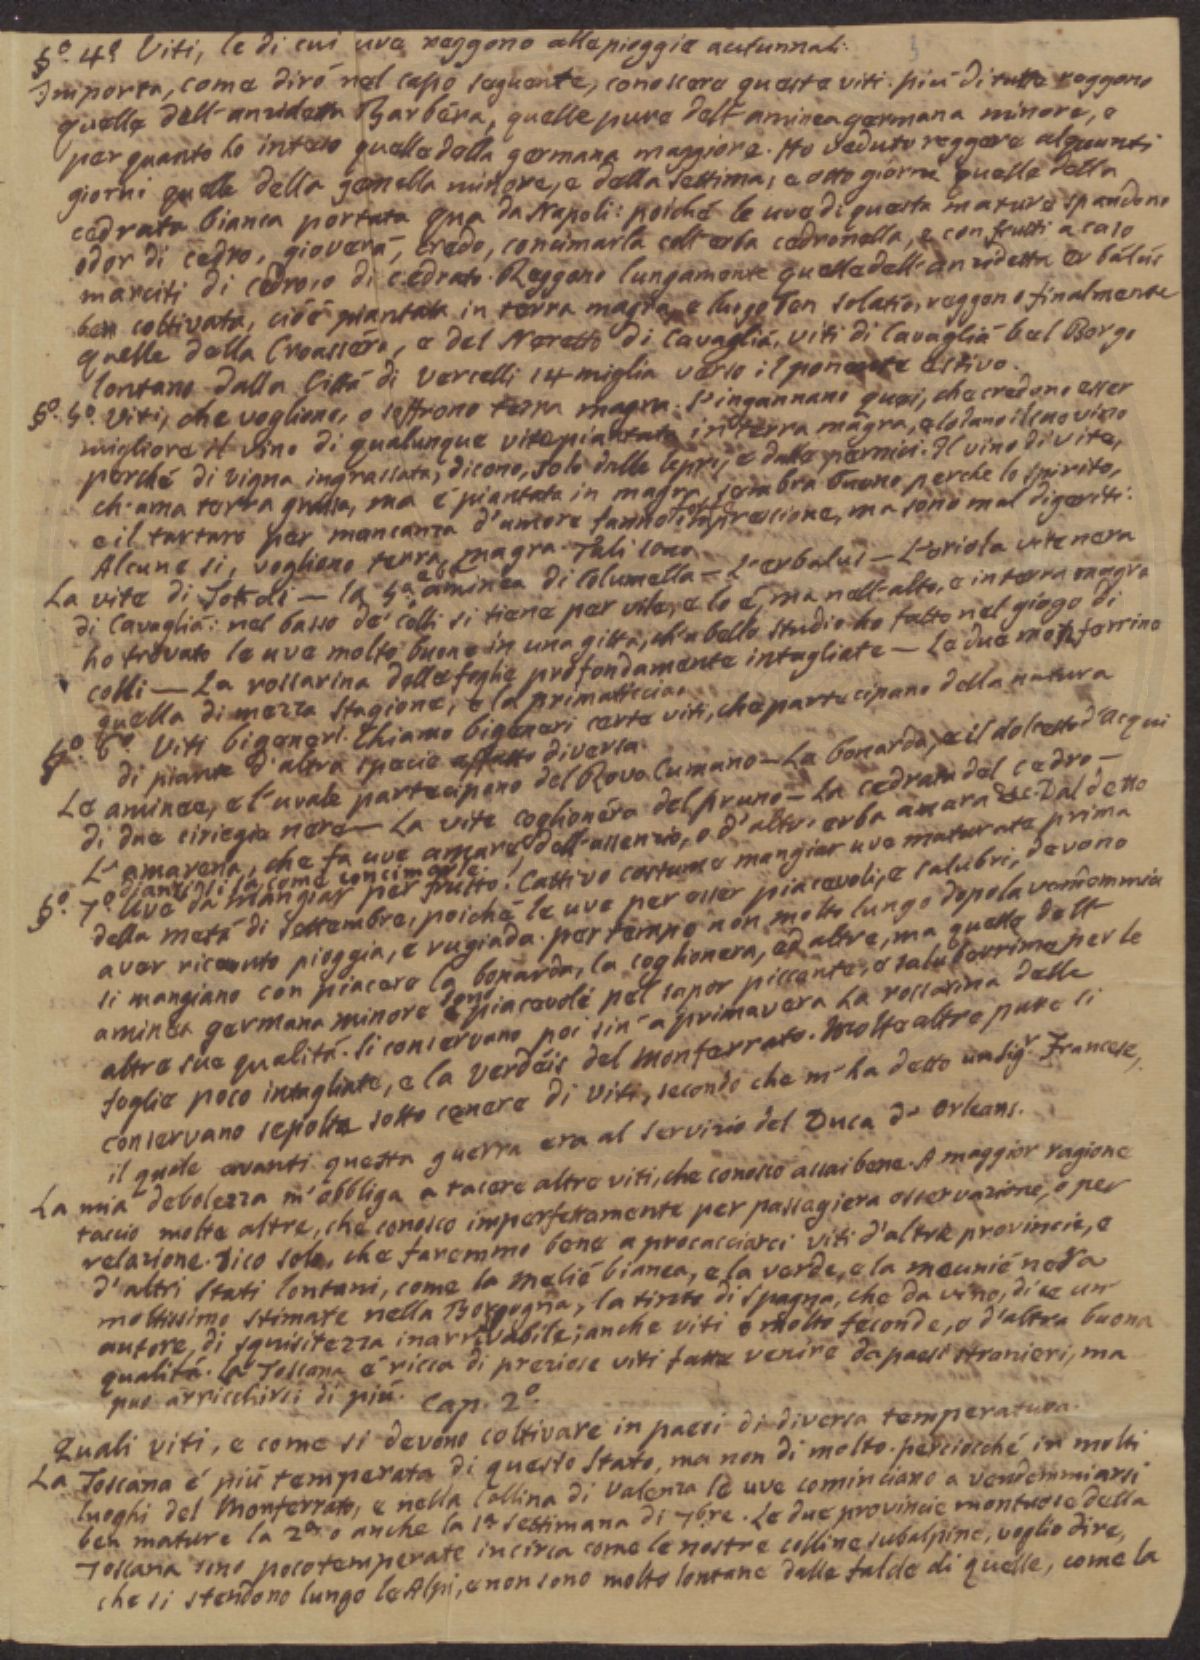 §.º 4.º Viti, le di cui uve reggono alle pioggie autunnali.
Importa, come dirò nel capo seguente, conoscere queste viti. più di tutte reggono
quelle dell'anzidetta Barbéra, quelle pure dell'aminea germana minore, e
per quanto ho inteso quelle della germana maggiore. Ho veduto reggere alquanti
giorni quelle della gemella minore, e della settima, e otto giorni quelle della
cedrata bianca portata qua da Napoli: poiché le uve di questa mature spandono
odor di cedro, gioverà, credo, concimarla coll'erba cedronella, e con frutti a caso
marciti di cedro, o di cedrato. Reggono lungamente quelle dell'anzidetta erbalús
ben coltivata, cióé piantata in terra magra, e luogo ben solatío, reggono finalmente
quelle della Croassera, e del Neretto di Cavaglià, viti di Cavaglià bel Borgo
lontano dalla Città di Vercelli 14 miglia verso il ponente estivo.
§.º 5.º Viti, che vogliono, o soffrono terra magra. S'ingannano quei, che credono esser
migliore il vino di qualunque vite piantata in terra magra, e lodano il suo vino
perché di vigna ingrassata, dicono, solo dalle lepri, e dalle pernici. Il vino di vite,
ch'ama terra grassa, ma é piantata in magra, sembra buono, perche lo spirito,
e il tartaro per mancanza d'umore fanno forte impressione, ma sono mal digeriti.
Alcune si, vogliono terra magra. Tali sono
La vite di Sotedi — la 5.a aminea di Columella — L'erbalus — L'oriola vite nera
di Cavaglià: nel basso de' colli si tiene per vile, e lo é, ma nell'alto, e in terra magra
ho trovato le uve molto buone in una gitta, ch'a bello studio ho fatto nel giogo di
colli — La rossarina delle foglie profondamente intagliate — Le due monferrino
quella di mezza stagione, e la primaticcia.
§.º 6.º Viti bigeneri. Chiamo bigeneri certe viti, che partecipano della natura
di piante d'altra specie affatto diversa.
Le aminee, e l'uvale partecipano del Rovo Cumano — La bonarda, e il dolcetto d'Acqui
di due ciriegie nere — La vite coglionéra del pruno — La cedrata del cedro —
L'amarena, che fa uve amare, dell'assenzio, o d'altr'erba amara &c. Dal detto
dianzi si sa come concimarle.
§.º 7.º Uve da mangiar per frutto. Cattivo costume mangiar uve maturate prima
della metà di Settembre, poiché le uve per esser piacevoli, e salubri, devono
aver ricevuto pioggia, e rugiada. per tempo non molto lungo dopo la vendemmia
si mangiano con piacere la bonarda, la coglionera, ed altre, ma quelle dell'
aminea germana minore sono piacevoli pel sapor piccante, e saluberrime per le
altre sue qualità. Si conservano poi sin'a primavera La rossarina delle
foglie poco intagliate, e la Verdéis del Monferrato. Molte altre pure si
conservano sepolte sotto cenere di viti, secondo che m'ha detto un Sig.r Francese,
il quale avanti questa guerra era al servizio del Duca d'Orleans.
La mia debolezza m'obbliga a tacere altre viti, che conosco assai bene. A maggior ragione
taccio molte altre, che conosco imperfettamente per passagiera osservazione, o per
relazione. Dico solo, che faremmo bene a procacciarci viti d'altre provincie, e
d'altri Stati lontani, come la melié bianca, e la verde, e la meunié nera
moltissimo stimate nella Borgogna, la tinto di Spagna, che da vino, dice un'
autore, di squisitezza inarrivabile; anche viti o molto feconde, o d'altra buona
qualità. La Toscana é ricca di preziose viti fatte venire da paesi stranieri, ma
può arricchirsi di più.
Cap. 2.º
Quali viti, e come si devono coltivare in paesi di diversa temperatura.
La Toscana é più temperata di questo Stato, ma non di molto. perciocché in molti
luoghi del Monferrato, e nella Collina di Valenza le uve cominciano a vendemmiarsi
ben mature la 2.da, o anche la 1.a settimana di 7bre. Le due provincie montuose della
Toscana sono poco temperate incirca come le nostre colline subalpine, voglio dire,
che si stendono lungo le Alpi, e non sono molto lontane dalle falde di quelle, come la